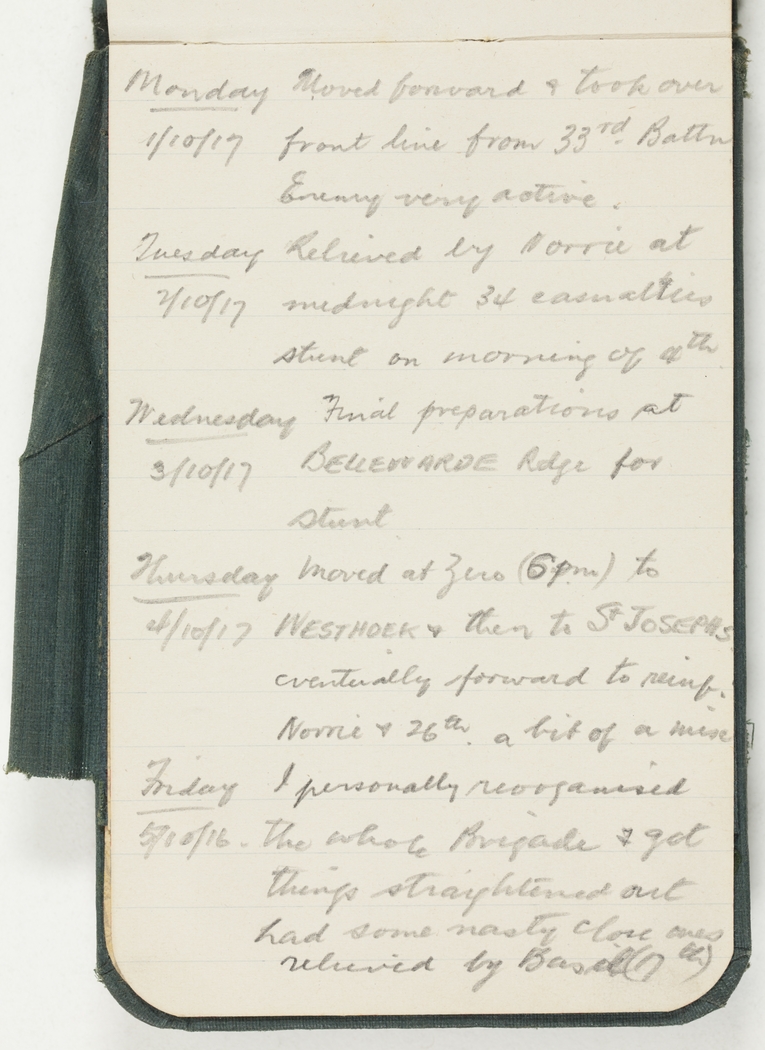 Monday Moved forward & took over
1/10/17 front line from 33rd. Battn
Enemy very active.
Tuesday Relieved by Norrie at
2/10/17 midnight 34 casualties
stunt on morning of 4th
Wednesday Final preparations at
3/10/17 BELLEWARDE Rdge for
stunt
Thursday Moved at Zero (6pm) to
4/10/17 WESTHOEK & then to St JOSEPHS
eventually forward to reinf.
Norrie & 26th. a bit of a mixe
Friday I personally reorganised
5/10/16. the whole Brigade & got
things straightened out
had some nasty close ones
relieved by Basil (17th)